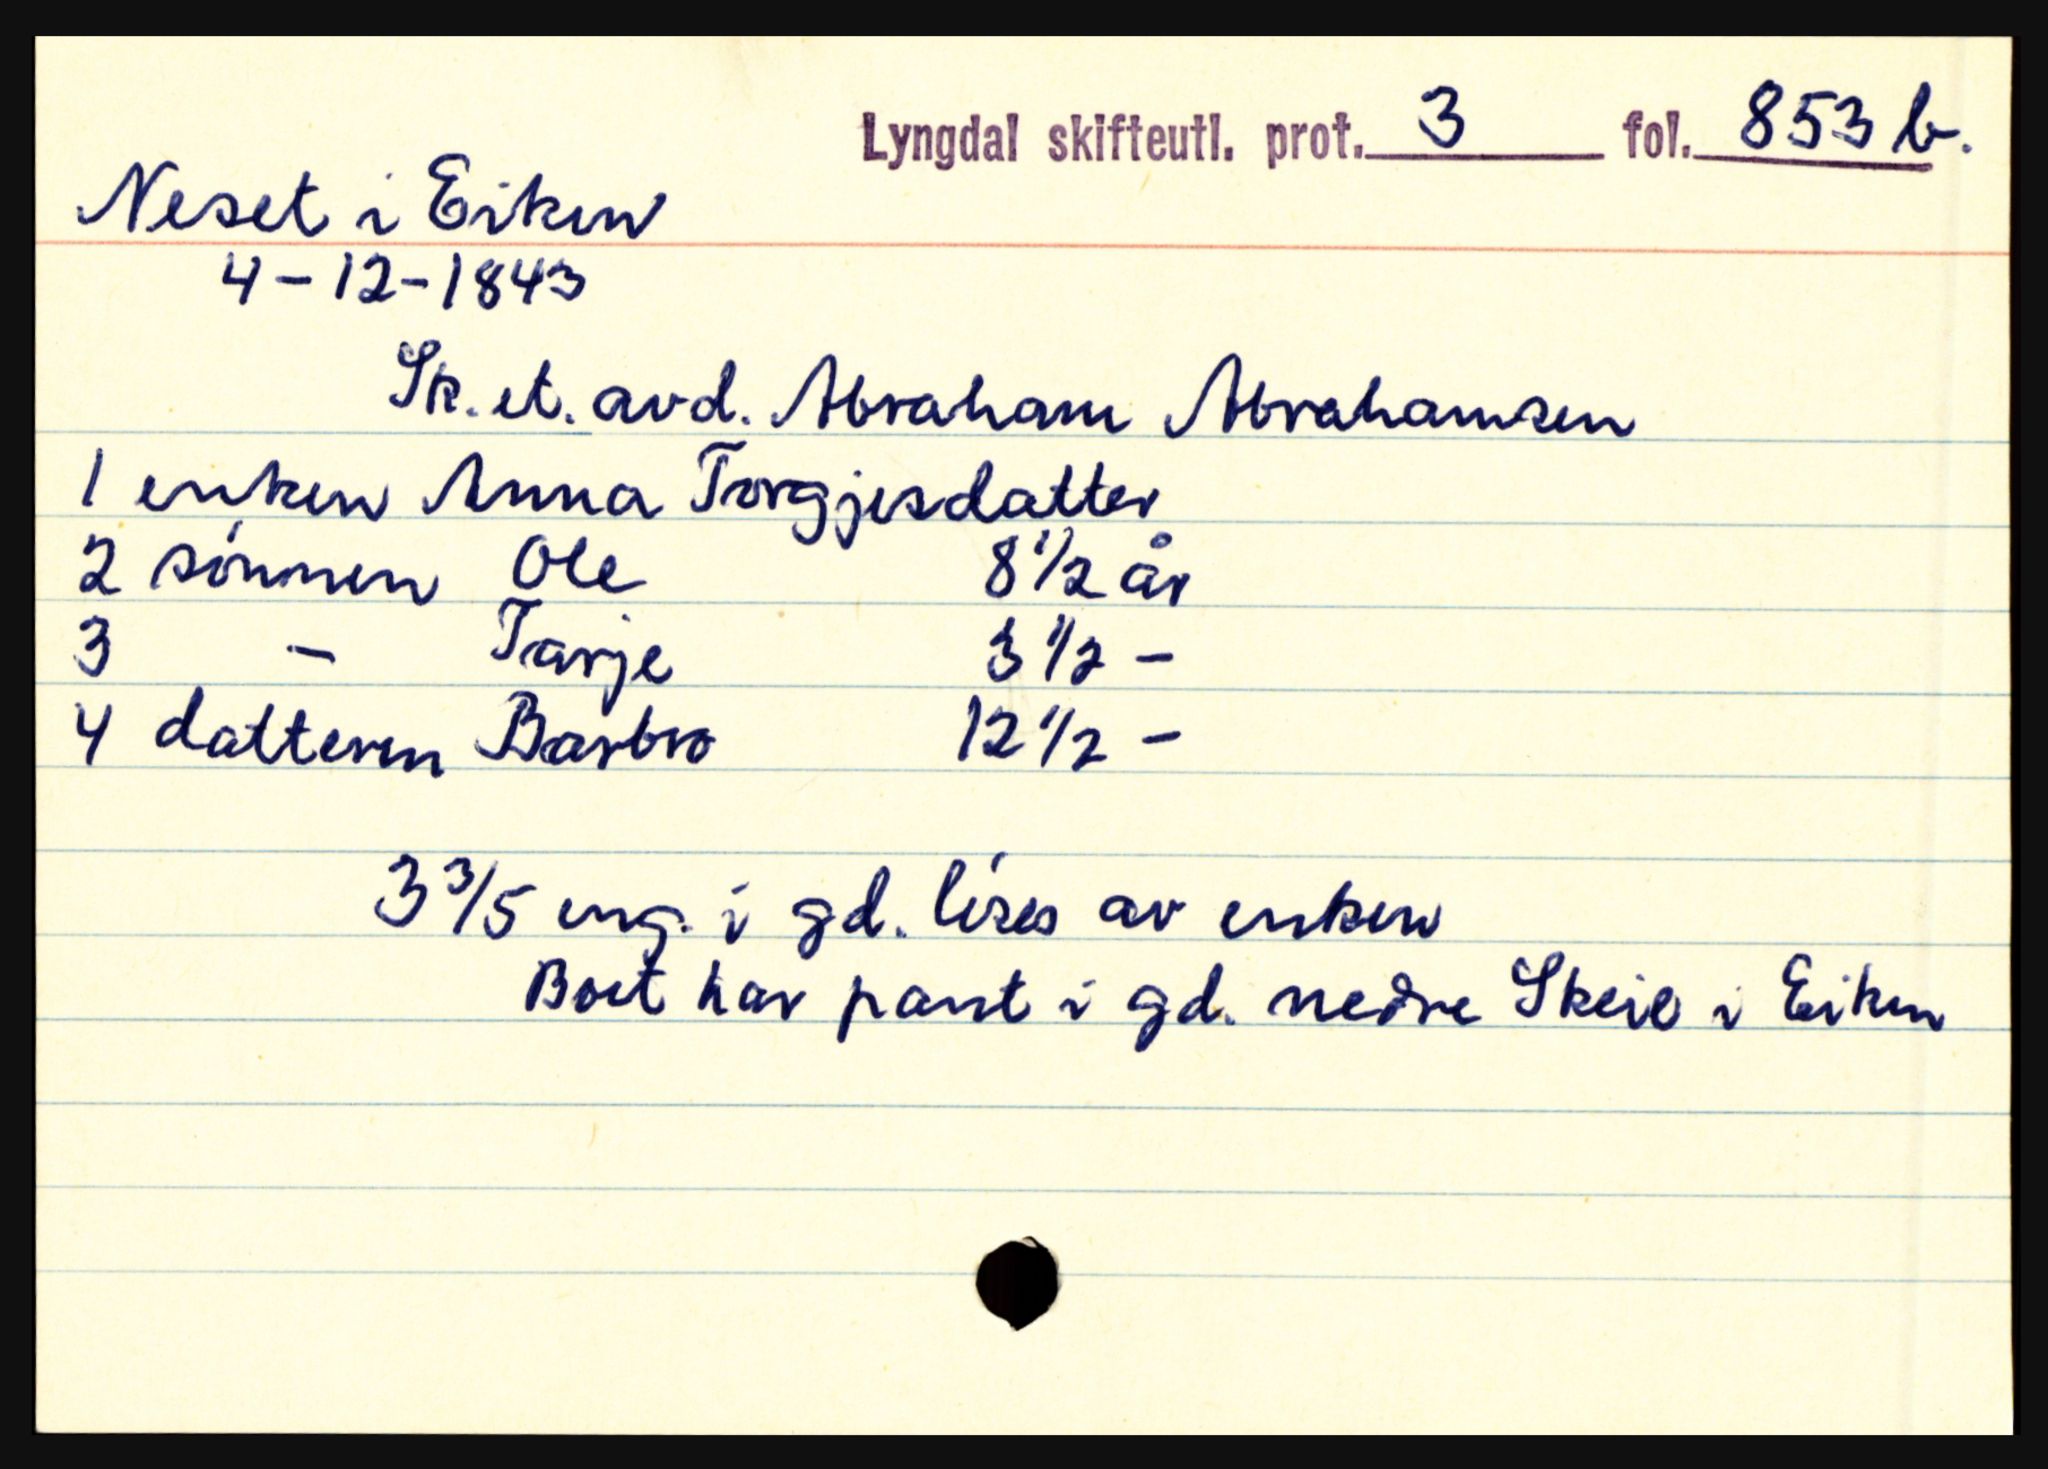 Lyngdal skifteutl. prot. 3 fol. 853 b.
Neset i Eiken
4-12-1843
Sk. et. avd. Abraham Abrahamsen
1 enken Anna Torgjesdatter
2 sønnen Ole 8 1/2 år
3 - Tarje 3 1/2 -
4 datteren Barbro 12 1/2 -
3 3/5 eng. i gd. løses av enken
Boet har pant i gd. nedre Skeie i Eiken